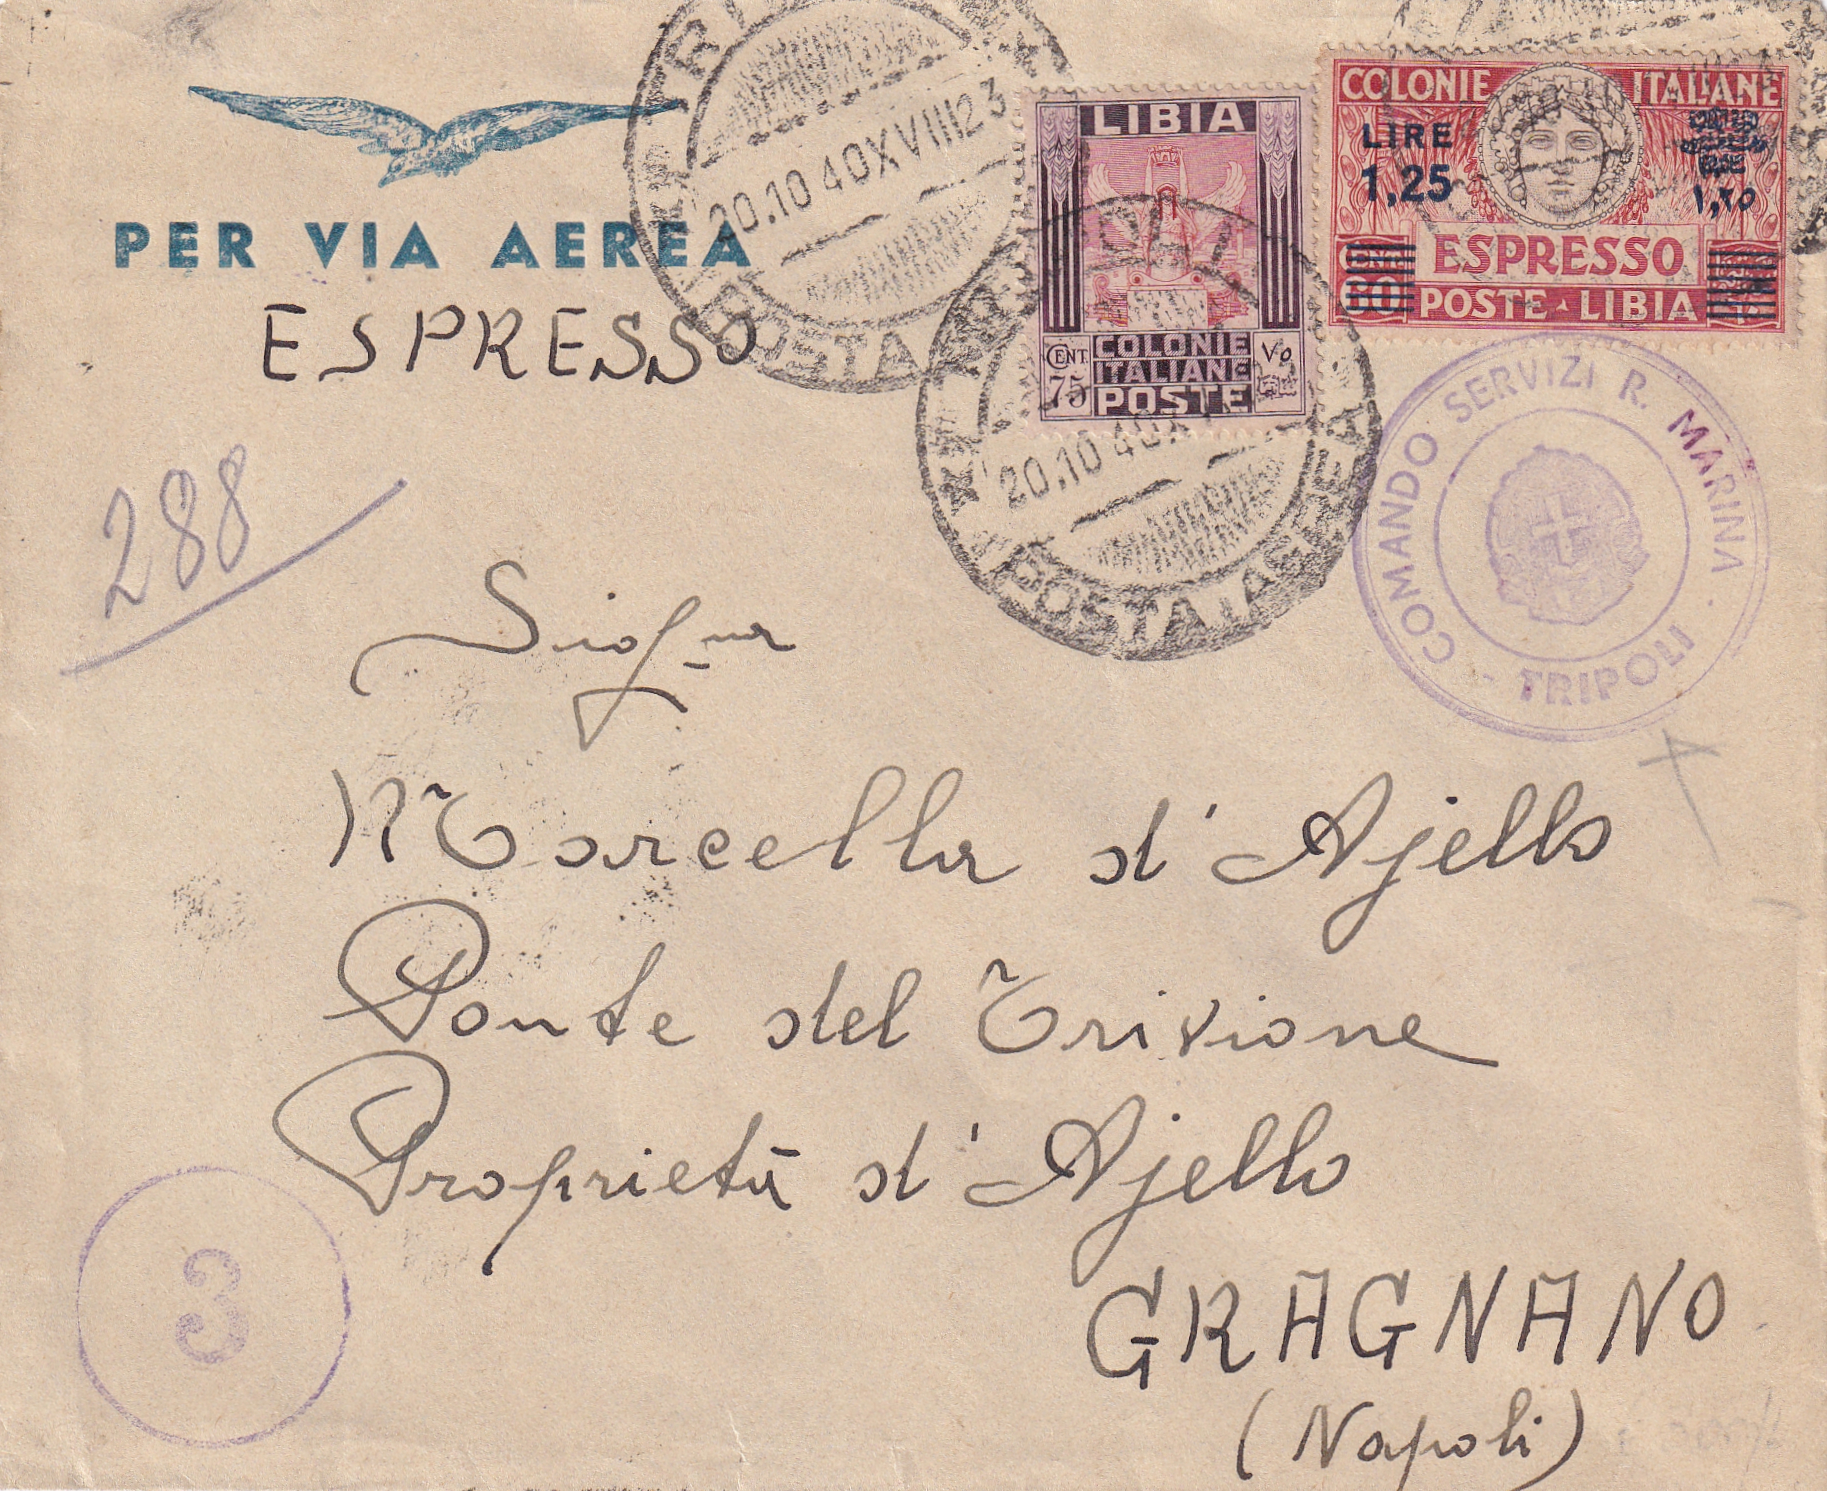 PER VIA AEREA
ESPRESSO
20.10 40 XVIII 23
POSTA AEREA
LIBIA
CENT. 75
٧٥
COLONIE
ITALIANE
POSTE
COLONIE ITALIANE
LIRE
1,25
١,٢٥
ESPRESSO
POSTE LIBIA
20.10 40
POSTA AEREA
COMANDO SERVIZI R. MARINA
- TRIPOLI -
288
Sig.na
Marcella d'Ajello
Ponte del Trivione
Proprietà d'Ajello
GRAGNANO
(Napoli)
3